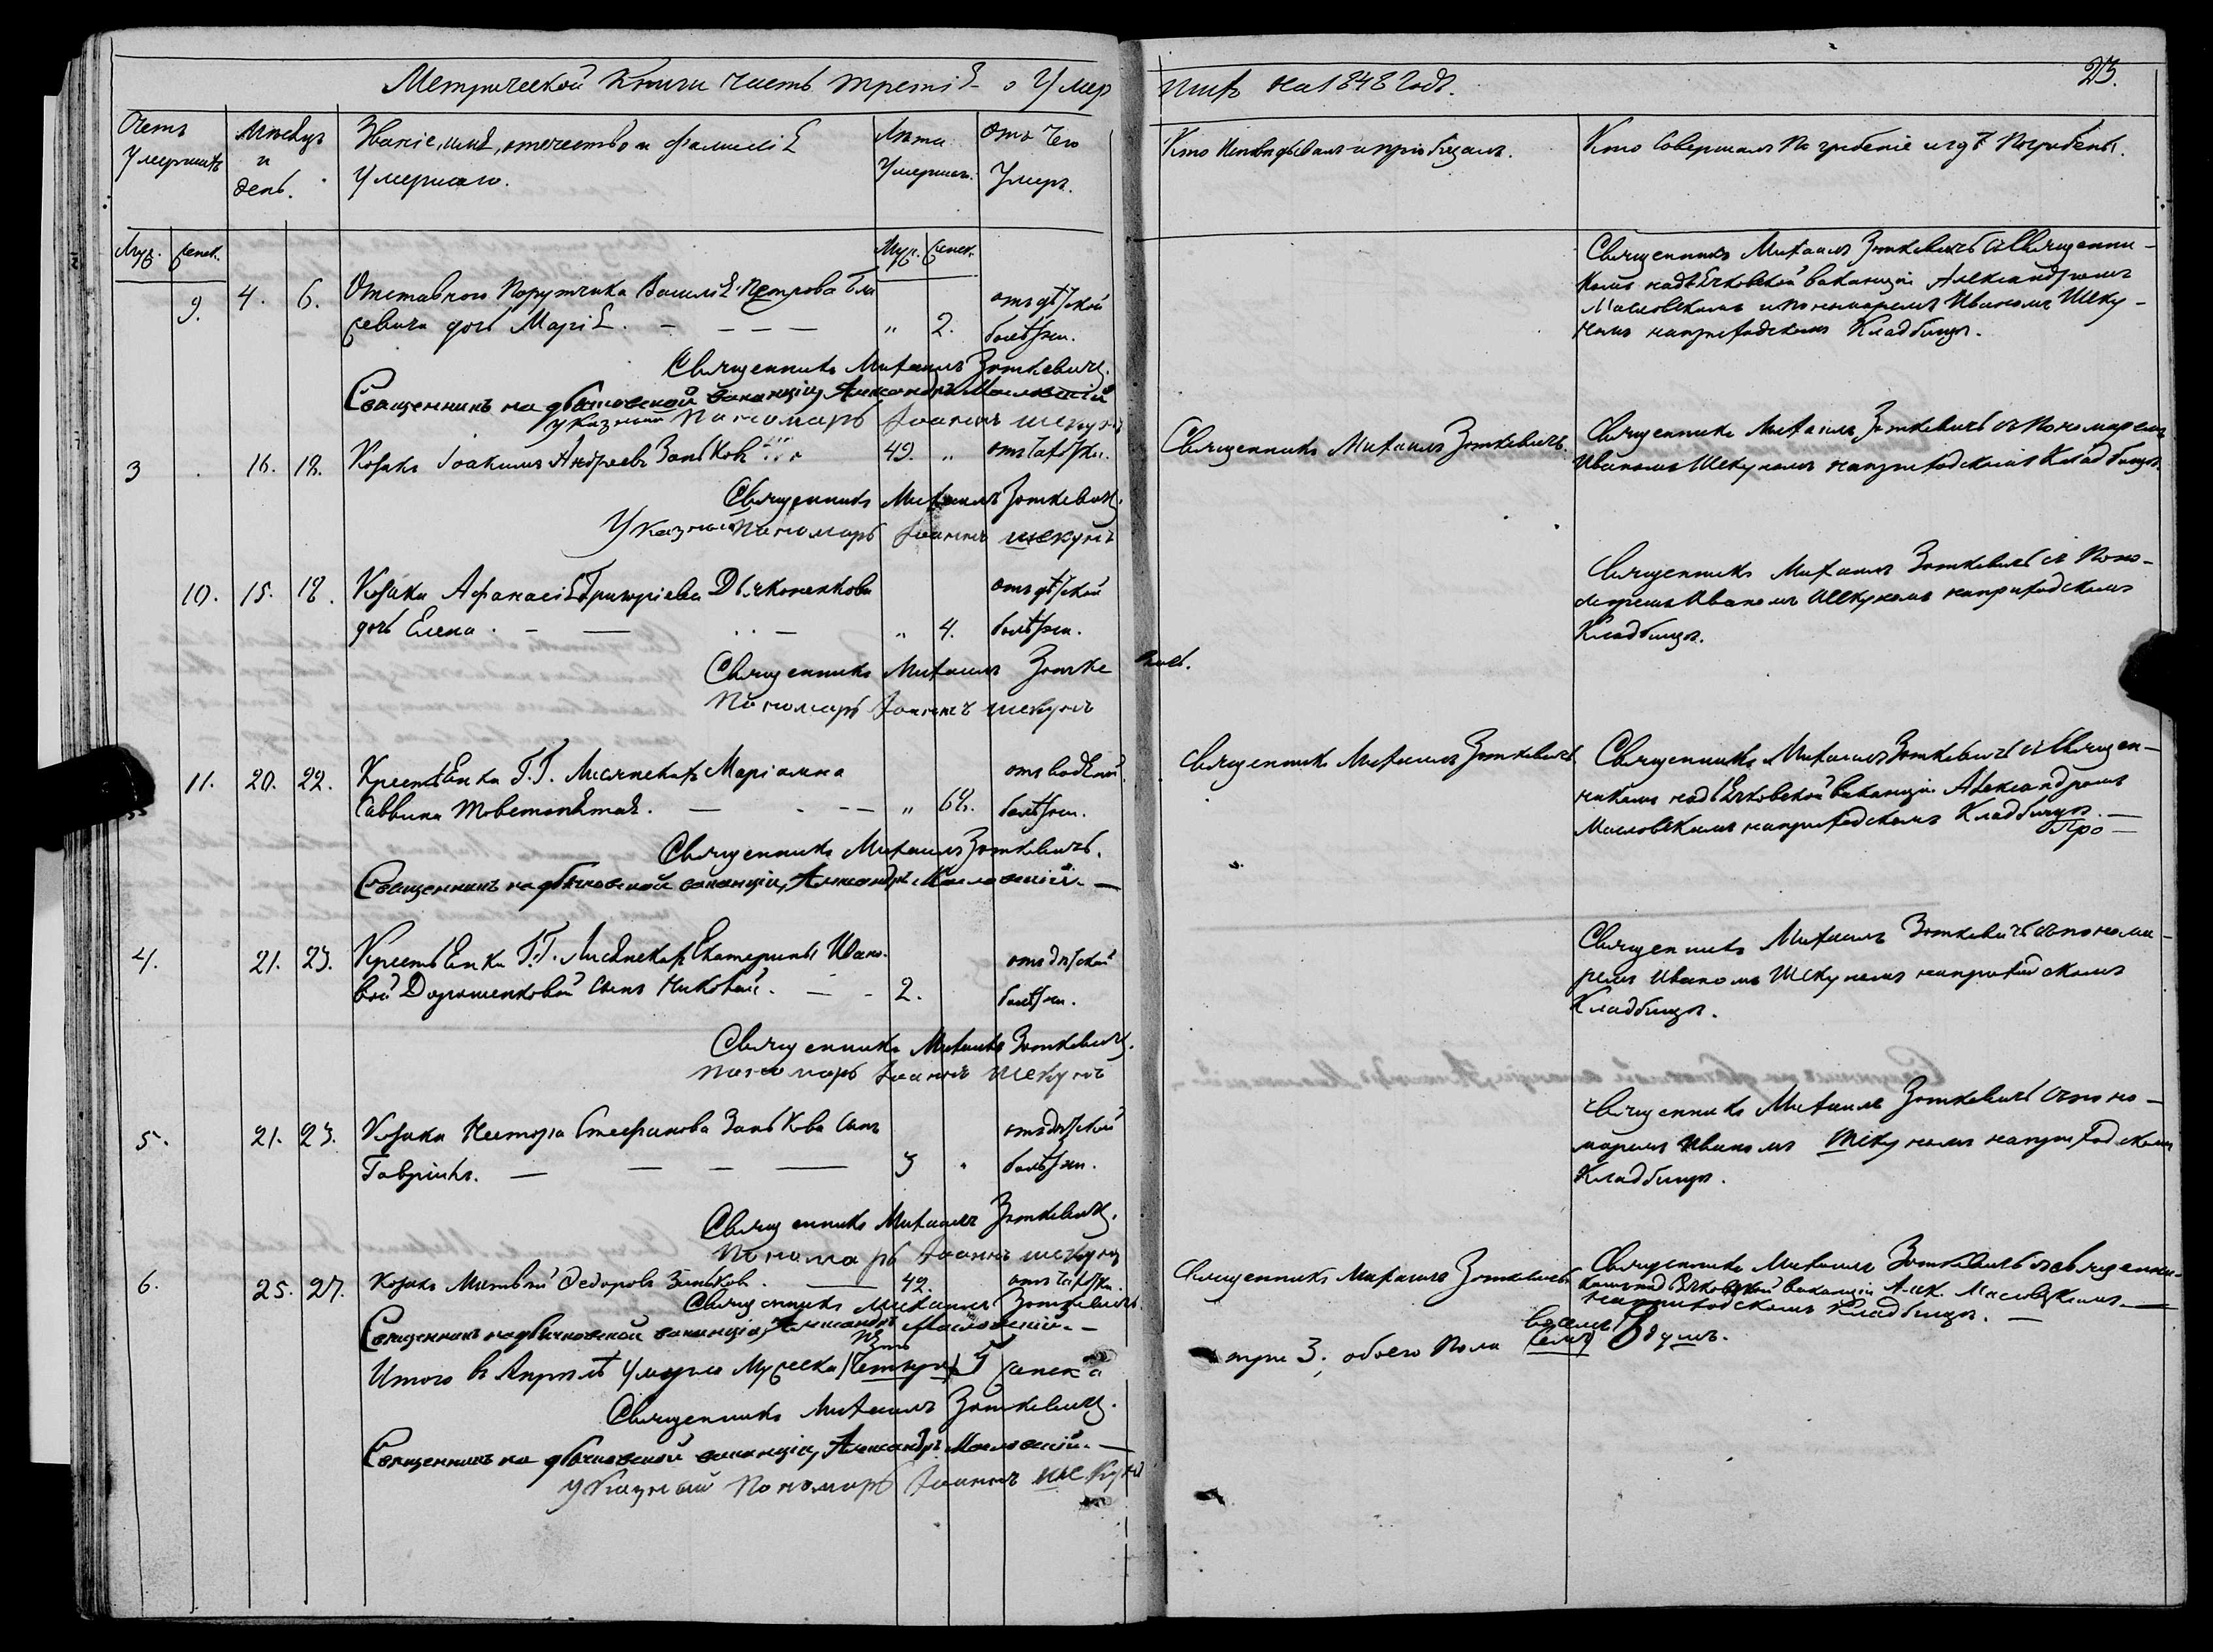 Метрической Книги часть третія о Умер
ших на 1848 Годъ.
23.
Счетъ
Умершихъ
Мѣсяцъ
и
день.
Званіе, имя, отечество и фамилія
Умершаго.
Лѣта
Умершаго.
Отъ чего
Умеръ.
Кто Исповѣдывалъ и пріобщалъ.
Кто Совершалъ Погребеніе и гдѣ Погребены.
Муж. Женск.
Муж. Женск.
9. 4. 6. Отставного Порутчика Василія Петрова
дочь Марія. - - - - " 2.
отъ дѣтской
болѣзни.
Священникъ Михаилъ Зоткевичъ съ Священни-
комъ надъячковской ваканціи Александромъ
Масловскимъ и пономаремъ Иваномъ Шеку-
номъ на приходскомъ Кладбищѣ.
Священникъ Михаилъ Зоткевичъ.
Священникъ на дьячковской ваканціи, Александръ Масловскій
указный Пономарь Іоаннъ Шекунъ
3 16. 18. Козакъ Іоакимъ Андреевъ Заньковъ 49. " отъ чахотки.
Священникъ Михаилъ Зоткевичъ.
Священникъ Михаилъ Зоткевичъ съ Пономаремъ
Иваномъ Шекуномъ на приходскомъ Кладбищѣ.
Священникъ Михаилъ Зоткевичъ.
Указный Пономарь Іоаннъ Шекунъ
10. 15. 18. Козака Афанасія Григоріева Дьяконенкова
дочь Елена. - — - " 4.
отъ дѣтской
болѣзни.
Священникъ Михаилъ Зоткевичъ съ Поно-
маремъ Иваномъ Шекуномъ на приходскомъ
Кладбищѣ.
Священникъ Михаилъ Зоткевичъ.
Пономарь Іоаннъ Шекунъ
11. 20. 22. Крестьянка Г.Г. Маріамна
Саввина - - - " 68.
отъ водяной
болѣзни.
Священникъ Михаилъ Зоткевичъ
Священникъ Михаилъ Зоткевичъ съ Священ-
никомъ надъячковской ваканціи Александромъ
Масловскимъ на приходскомъ Кладбищѣ. —
Священникъ Михаилъ Зоткевичъ.
Священникъ на дьячковской ваканціи, Александръ Масловскій. —
4. 21. 23. Крестьянки Г.Г. Екатерины Ивано-
вой Дорошенковой сынъ Николай. — - 2.
отъ дѣтской
болѣзни.
Священникъ Михаилъ Зоткевичъ съ понома-
ремъ Иваномъ Шекуномъ на приходскомъ
Кладбищѣ.
Священникъ Михаилъ Зоткевичъ.
Пономарь Іоаннъ Шекунъ
5. 21. 23. Козака Нестора Стефанова Занькова сынъ
Гавріилъ. — — — — 3
отъ дѣтской
болѣзни.
Священникъ Михаилъ Зоткевичъ съ поно-
маремъ Иваномъ Шекуномъ на приходскомъ
Кладбищѣ.
Священникъ Михаилъ Зоткевичъ.
Пономарь Іоаннъ Шекунъ
6. 25. 27. Козакъ Матвей Федоровъ Заньковъ. — 42. отъ чахотки.
Священникъ Михаилъ Зоткевичъ
Священникъ Михаилъ Зоткевичъ съ священни-
комъ надъячковской ваканціи Алек. Масловскимъ —
на приходскомъ Кладбищѣ. —
Священникъ Михаилъ Зоткевичъ.
Священникъ на дьячковской ваканціи, Александръ Масловскій. —
Итого въ Апрѣлѣ Умерло Мужеска (четыре) 5 женска
три 3, обоего пола (семь) восемь 8 душъ.
Священникъ Михаилъ Зоткевичъ.
Священникъ на дьячковской ваканціи, Александръ Масловскій. —
указный Пономарь Іоаннъ Шекунъ